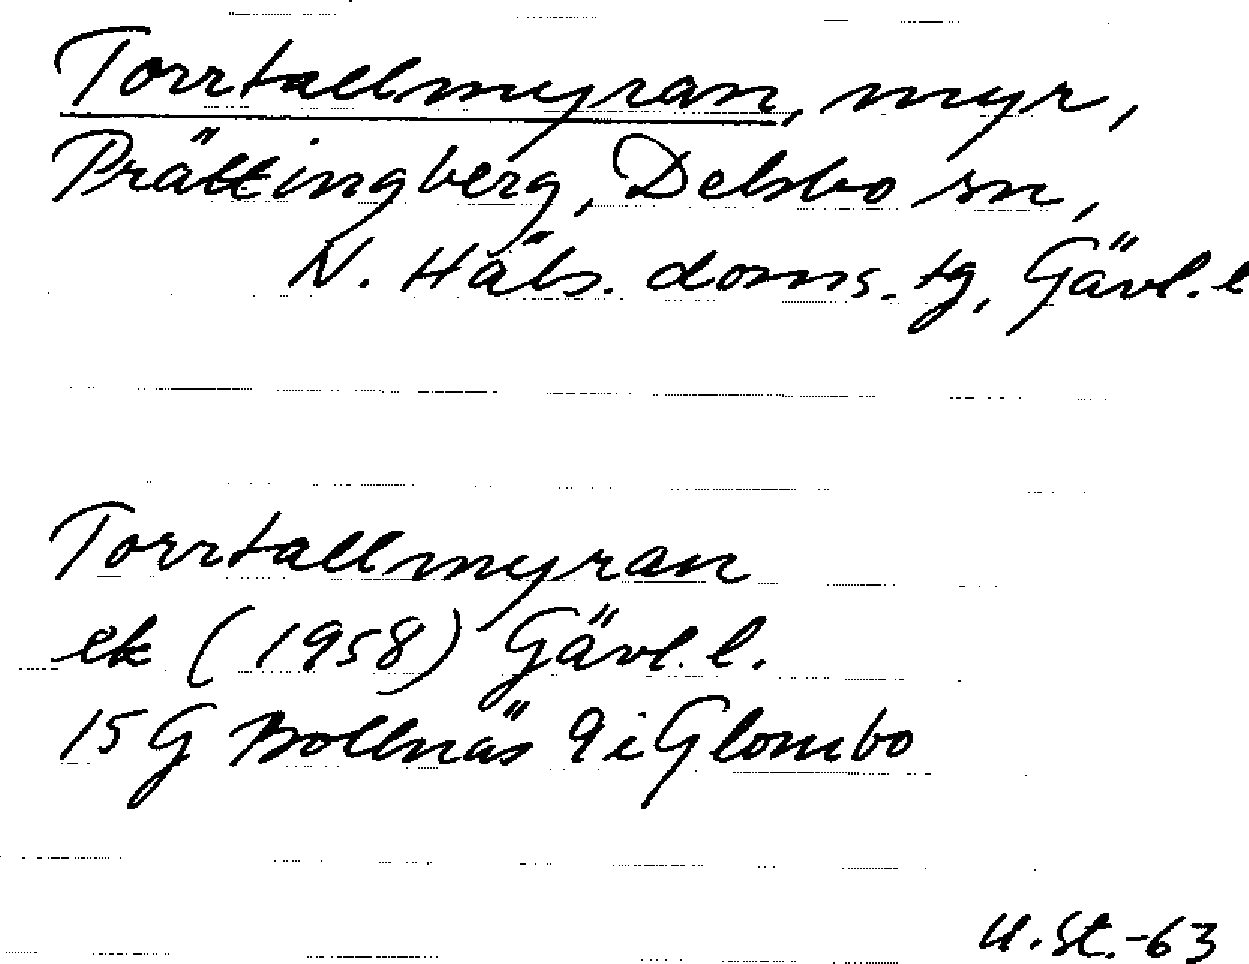 Torrtallmyran, myr,
Prättingberg, Delsbo sn,
N. Häls. doms. tg, Gävl. l
Torrtallmyran
ek (1958) Gävl. l.
15 G Bollnäs 9 i Glombo
U. St. -63